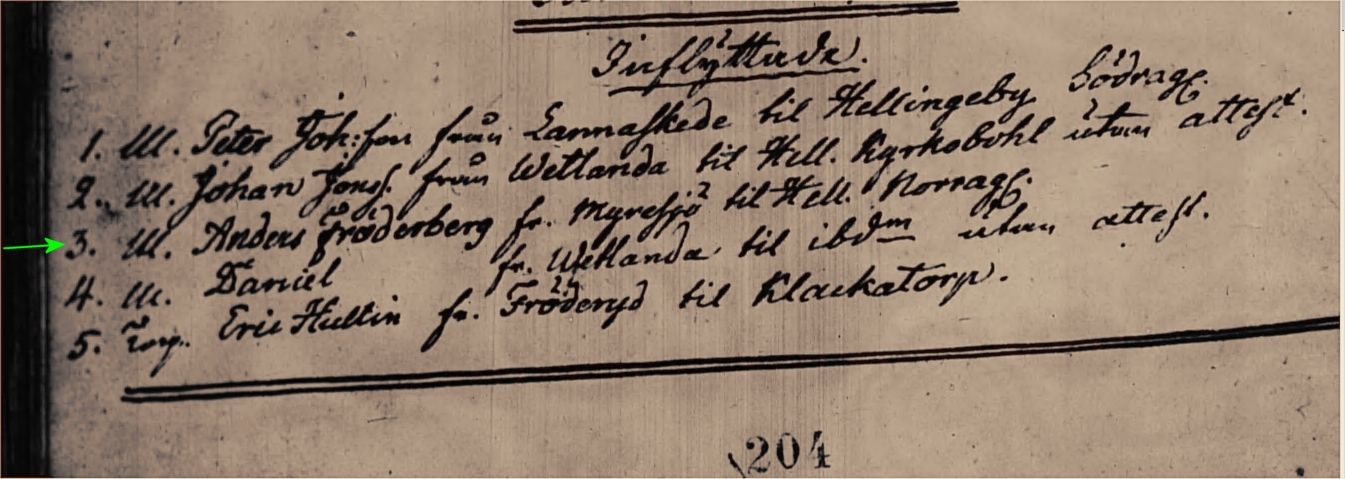 Inflyttade.
1. M. Peter Joh:son från Lannaskede til Hellingeby Södrag.
2. M. Johan Jonss. från Wetlanda til Hell. Kyrkobohl utan attest.
3. M. Anders Fröderberg fr. Myresjö til Hell. Norrag.
4. M. Daniel fr. Wetlanda til ibdm utan attest.
5. Eric Hultin fr. Fröderyd til Klackatorp.
204